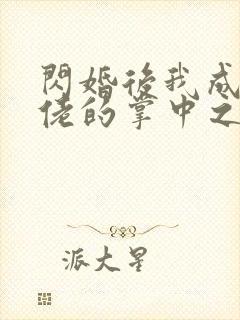 閃婚後我成
佬的掌中之
派大星